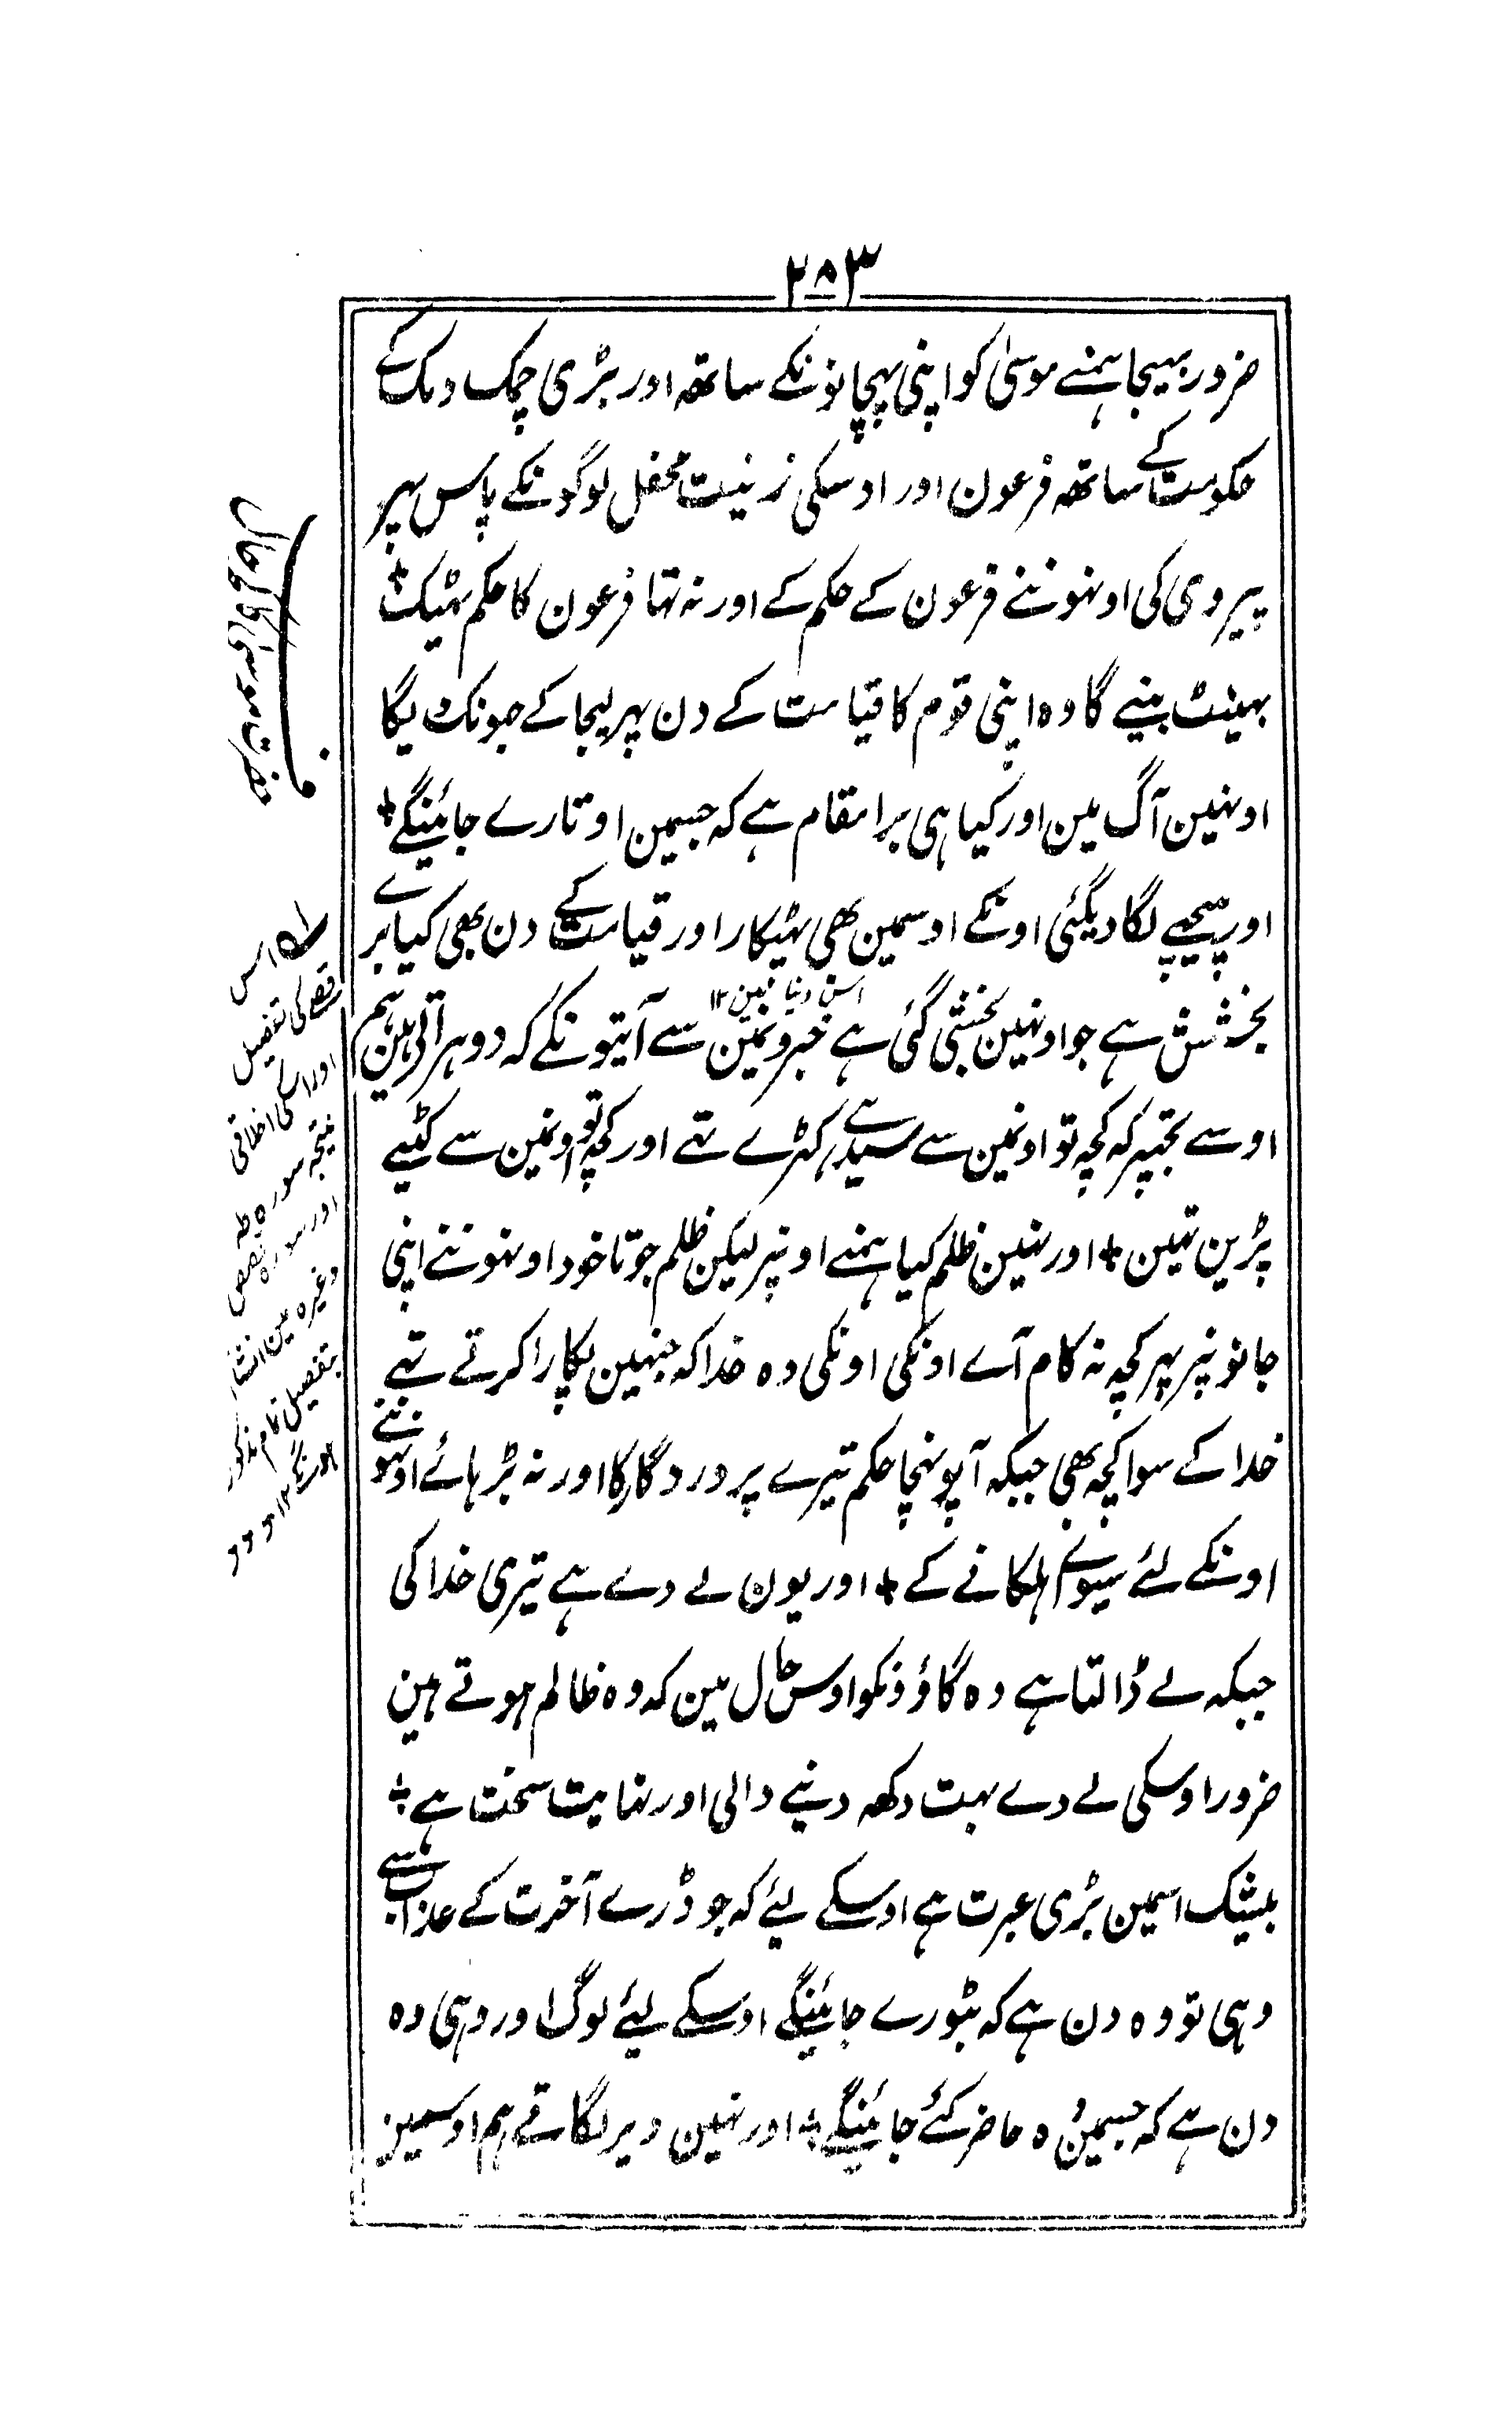 ۲۸۳
ضرور بہیجا ہمنے موسیٰ کو اپنی پہچانونکے ساتھہ اور بڑی چمک دمک کے
حکومت کے ساتھہ فرعون اور اوسکی زینت محفل لوگونکے پاس پہر
پیروی کی اونہوننے فرعون کے حکم کے اور نہ تہا فرعون کا حکم ٹہیک
بہینٹ بنیے گا وہ اپنی قوم کا قیامت کے دن پہر لیجا کے جہونک لیگا
اونہین آگ مین اور کیا ہی برا مقام ہے کہ جسمین اوتارے جائینگے
اور پیچہے لگا دیگئی اونکے اوسمین بھی پہٹکار اور قیامت کے دن بھی کیا برے
اس دنیا مین ۱۲
بخشش ہے جو اونہین بخشی گئی ہے خبرونمین سے آیتونکے کہ دوہراتے ہین ہم
اوسے تجہپر کہ کچہ تو اونمین سے سیدہے کہڑے تہے اور کچہ تو اونمین سے کٹیے
پڑین تہین اور نہین ظلم کیا ہمنے اونپر لیکن ظلم جوتا خود اونہوننے اپنی
جانونپر پہر کچہ نہ کام آے اونکی اونکی وہ خدا کہ جنہین پکارا کرتے تہے
خدا کے سوا کچہ بھی جبکہ آپونہچا حکم تیرے پروردگار کا اور نہ بڑہائے اونہوننے
اونکے لئے سیوائے ہلکانے کے اور یون لے دے ہے تیری خدا کی
جبکہ لے ڈالتا ہے وہ گاؤونکو اوس حال مین کہ وہ ظالم ہوتے ہین
ضرور اوسکی لے دے بہت دکھہ دنیے والی اور نہایت سخت ہے
بیشک اسمین بڑی عبرت ہے اوسکے لیئے کہ جو ڈرے آخرت کے عذاب سے
وہی تو وہ دن ہے کہ بٹورے جائینگے اوسکے لیئے لوگ اور وہی وہ
دن ہے کہ جسمین وہ حاضر کئے جائینگے اور نہین دیر لگاتے ہم اوسمین
اس
قصے کی تفصیل
اور اسکی اخلاقی
نتیجہ سورہ طہ
اور سورہ قصص
وغیرہ مین انشاء
بتفصیل تمام مذکور
ہونگے ۱۲